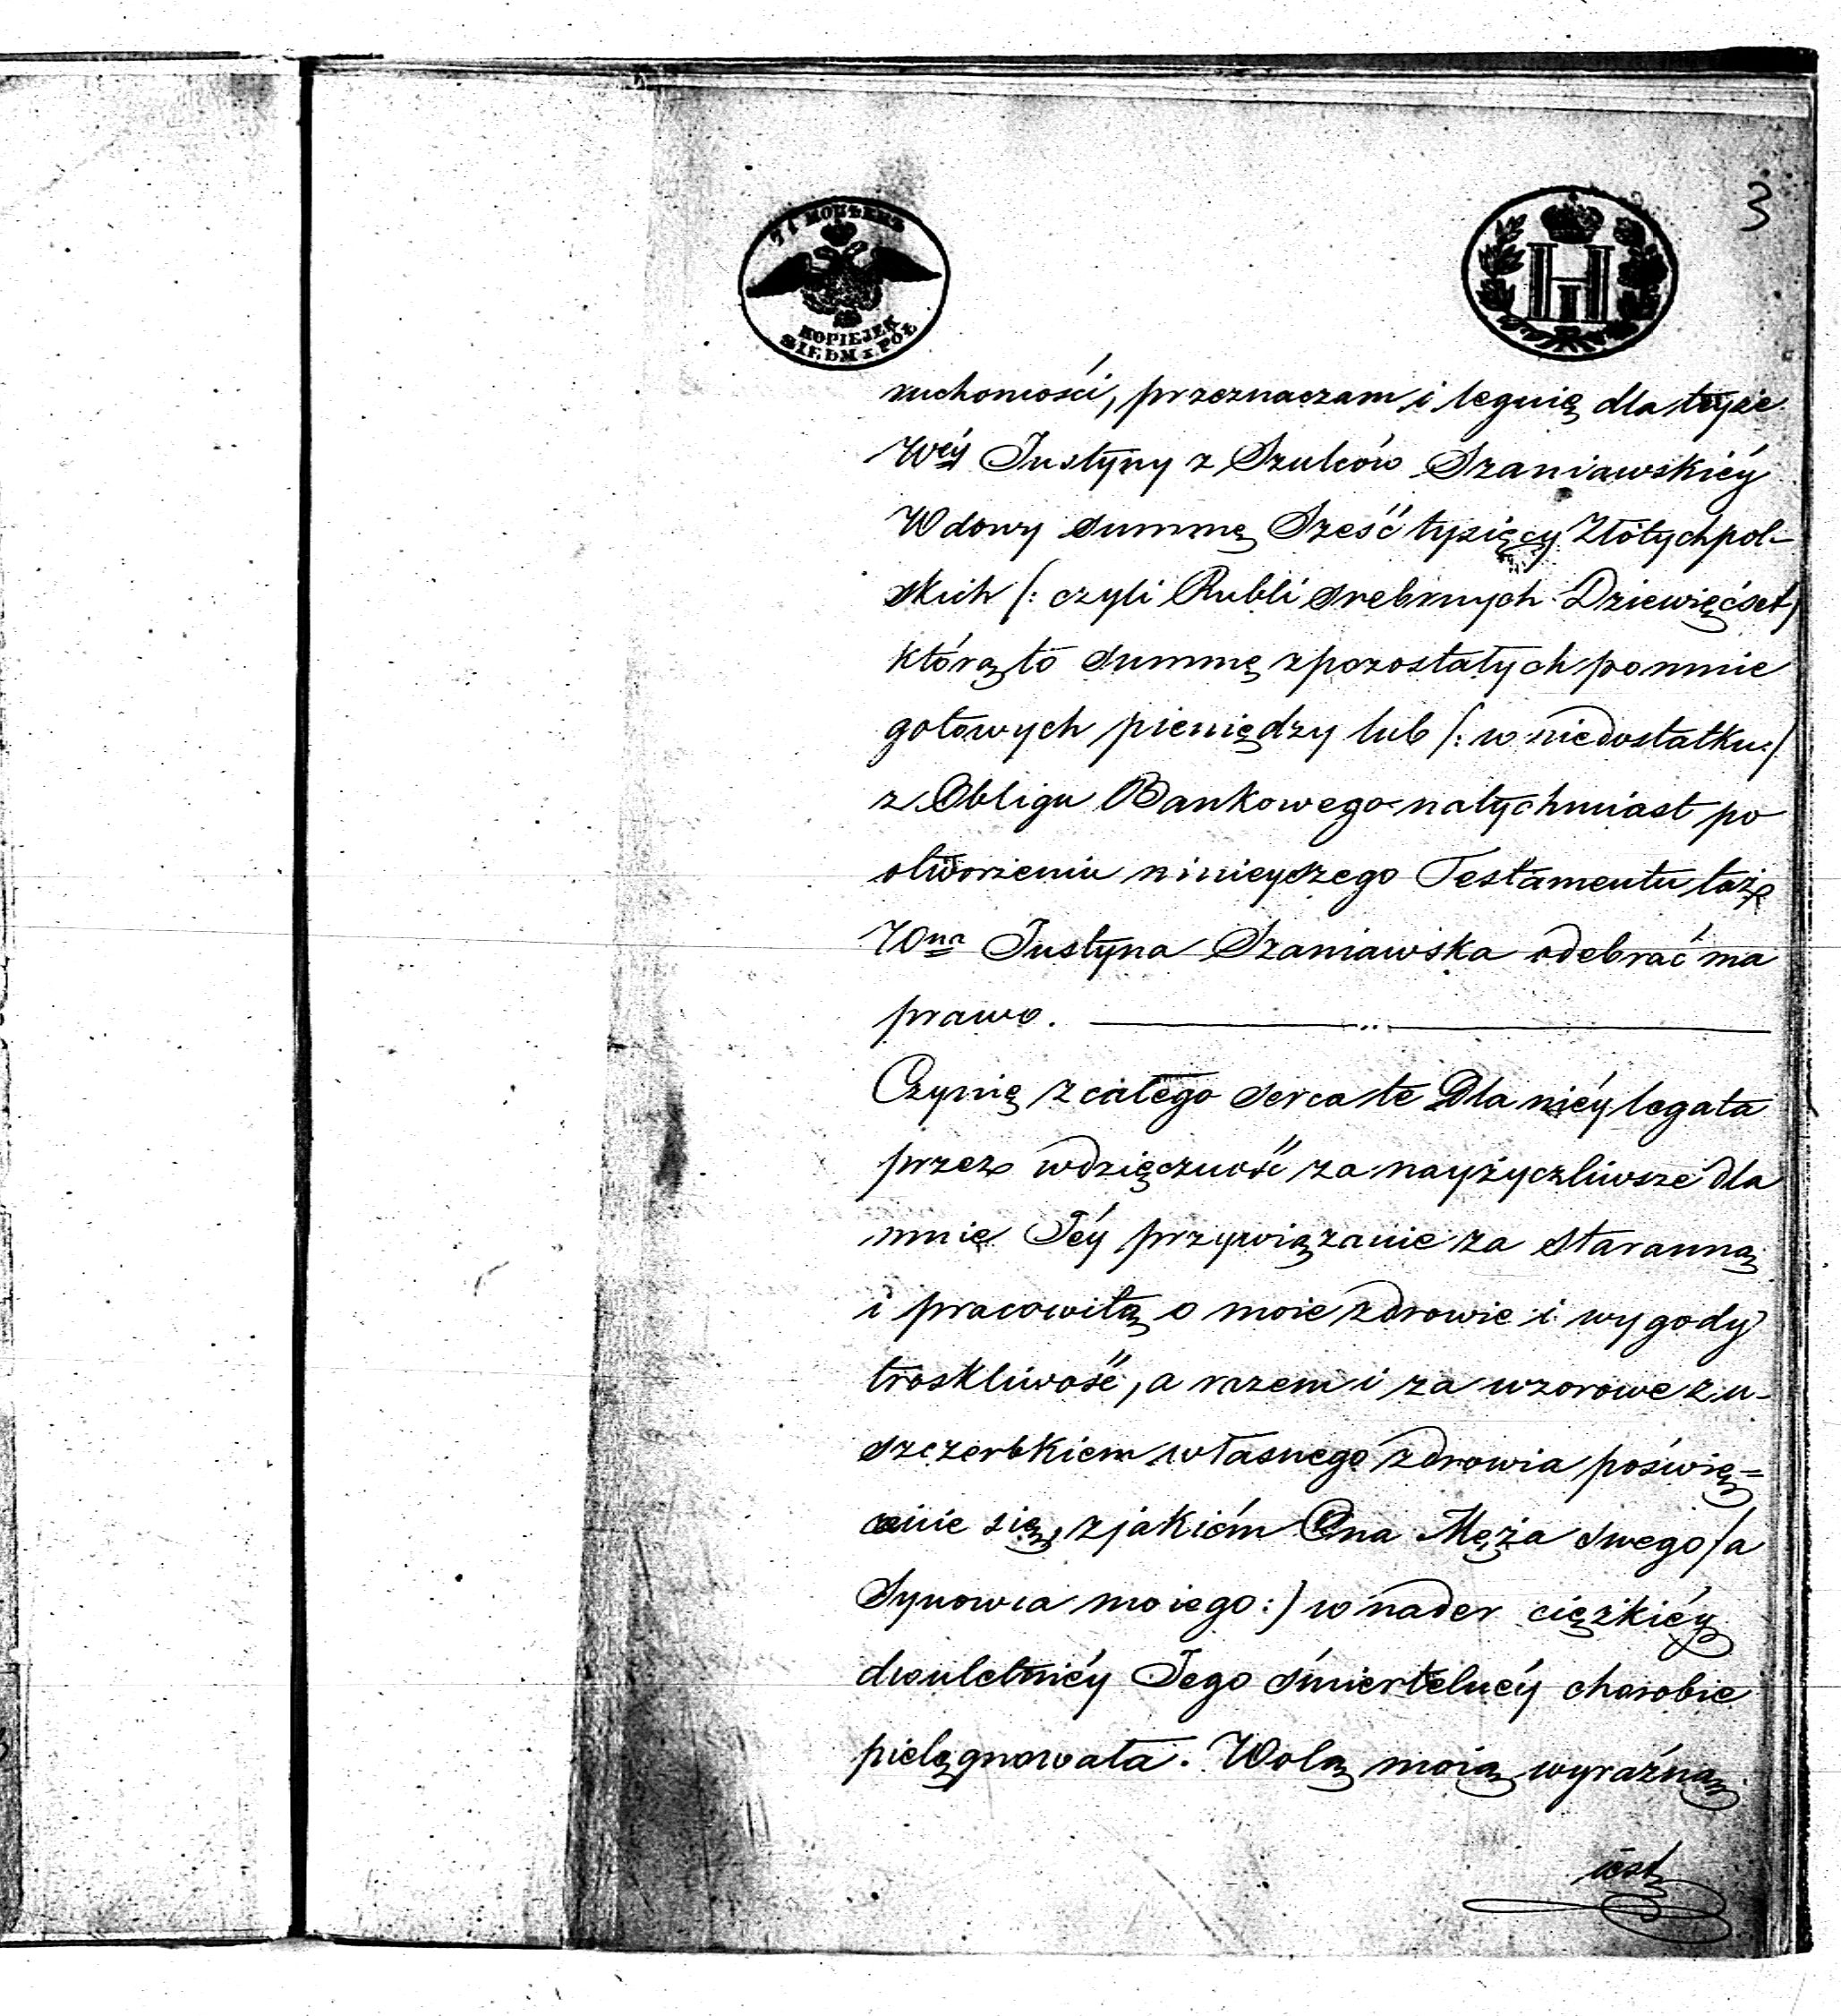 3
7½ КОПѢЕКЪ
KOPIEJEK
SIEDM i PÓŁ
ruchomości, przeznaczam i leguię dla teyże
Wéy Justyny z Szulców Szaniawskiéy
Wdowy summę Sześć tysięcy Złotych pol-
skich (: czyli Rubli srebrnych Dziewięćset)
którą to summę z pozostałych po mnie
gotowych pieniędzy lub (: w niedostatku:)
z Obligu Bankowego natychmiast po
otworzeniu ninieyszego Testamentu taż
Wna Justyna Szaniawska odebrać ma
prawo.
Czynię z całego serca te Dla niéy legata
przez wdzięczność za nayżyczliwsze dla
mnie Jéy przywiązanie za staranną
i pracowitą o moie zdrowie i wygody
troskliwość, a razem i za wzorowe z u-
szczerbkiem własnego zdrowia poświę=
cenie się, z jakiém Ona Męża swego (a
Synowca moiego:) w nader ciężkiéy
dwuletniéy Jego śmiertelnéy chorobie
pielęgnowała. Wolą moią wyraźną
iest